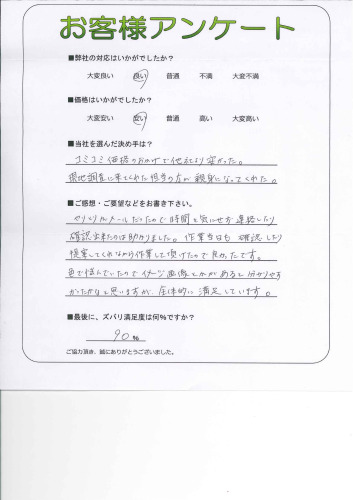 お客様アンケート
■弊社の対応はいかがでしたか？
大変良い 良い 普通 不満 大変不満
■価格はいかがでしたか？
大変安い 安い 普通 高い 大変高い
■当社を選んだ決め手は？
コミコミ価格のおかげで他社より安かった。
現地調査に来てくれた担当の方が親身になってくれた。
■ご感想・ご要望などをお書き下さい。
やりとりがメールだったので時間を気にせず連絡したり
確認出来たのは助かりました。作業当日も確認したり
提案してくれながら作業して頂けたので良かったです。
色で悩んでいたのでイメージ画像とかがあると分かりやす
かったかなと思いますが、全体的に満足しています。
■最後に、ズバリ満足度は何％ですか？
90 %
ご協力頂き、誠にありがとうございました。